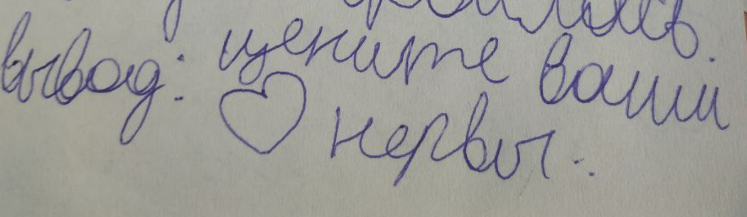 вывод: цените ваши
♡ нервы..